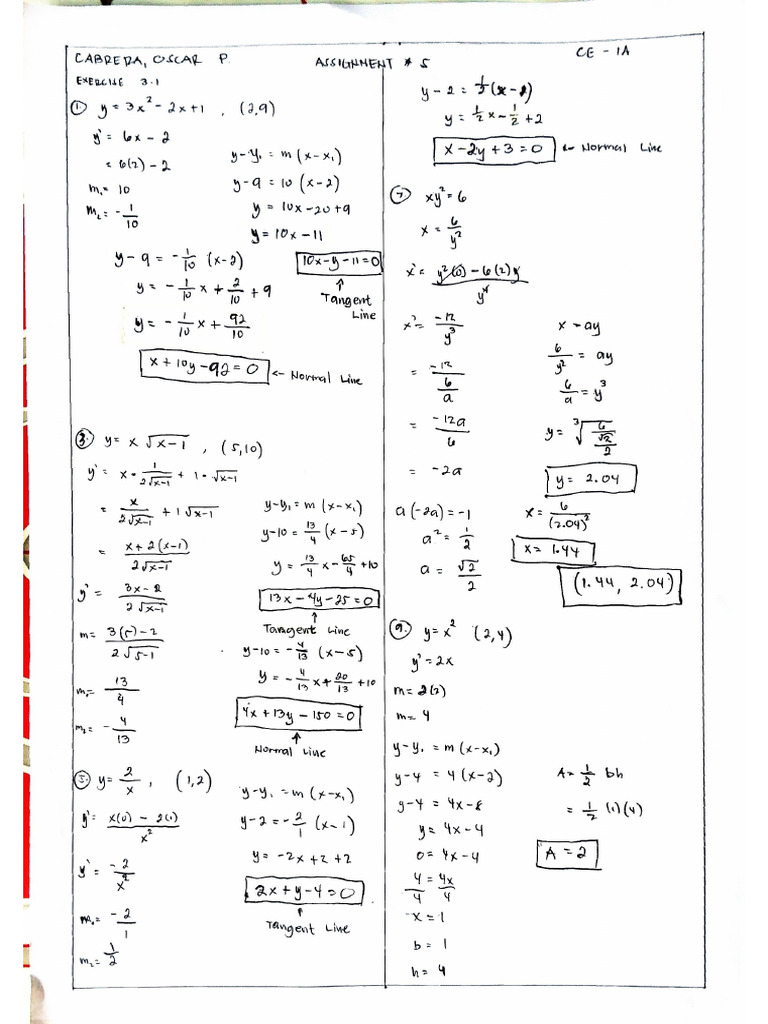 CABRERA, OSCAR P.
ASSIGNMENT # 5
CE - 1A
EXERCISE 3.1
① y = 3x² - 2x + 1 , (2,9)
y' = 6x - 2
= 6(2) - 2
m₁ = 10
m₂ = - 1/10
y - y₁ = m (x - x₁)
y - 9 = 10 (x - 2)
y = 10x - 20 + 9
y = 10x - 11
10x - y - 11 = 0
↑
Tangent
Line
y - 9 = - 1/10 (x - 2)
y = - 1/10 x + 2/10 + 9
y = - 1/10 x + 92/10
x + 10y - 92 = 0 ← Normal Line
③. y = x √(x-1) , (5,10)
y' = x • 1/(2√(x-1)) + 1 • √(x-1)
= x/(2√(x-1)) + 1√(x-1)
= (x + 2(x-1))/(2√(x-1))
y' = (3x - 2)/(2√(x-1))
m = (3(5) - 2)/(2√(5-1))
m₁ = 13/4
m₂ = - 4/13
y - y₁ = m (x - x₁)
y - 10 = 13/4 (x - 5)
y = 13/4 x - 65/4 + 10
13x - 4y - 25 = 0
↑
Tangent Line
y - 10 = - 4/13 (x - 5)
y = - 4/13 x + 20/13 + 10
4x + 13y - 150 = 0
↑
Normal Line
⑤. y = 2/x , (1,2)
y' = (x(0) - 2(1))/x²
y' = -2/x²
m₁ = -2/1
m₂ = 1/2
y - y₁ = m (x - x₁)
y - 2 = - 2/1 (x - 1)
y = -2x + 2 + 2
2x + y - 4 = 0
↑
Tangent Line
y - 2 = 1/2 (x - 1)
y = 1/2 x - 1/2 + 2
x - 2y + 3 = 0 ← Normal Line
⑦ xy² = 6
x = 6/y²
x' = (y²(0) - 6(2)y)/y⁴
x' = -12/y³
= -12/(6/a)
= -12a/6
= -2a
a(-2a) = -1
a² = 1/2
a = √2/2
x = ay
6/y² = ay
6/a = y³
y = ³√(6/(√2/2))
y = 2.04
x = 6/(2.04)²
x = 1.44
(1.44, 2.04)
⑨. y = x² (2,4)
y' = 2x
m = 2(2)
m = 4
y - y₁ = m (x - x₁)
y - 4 = 4 (x - 2)
y - 4 = 4x - 8
y = 4x - 4
0 = 4x - 4
4/4 = 4x/4
x = 1
b = 1
h = 4
A = 1/2 bh
= 1/2 (1)(4)
A = 2